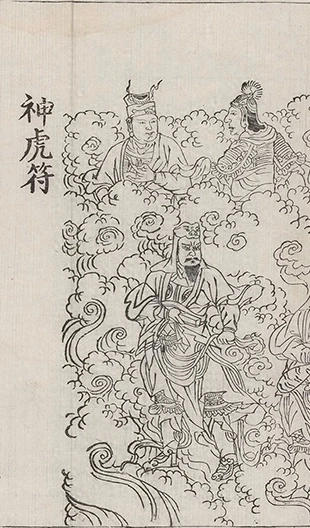 神虎符